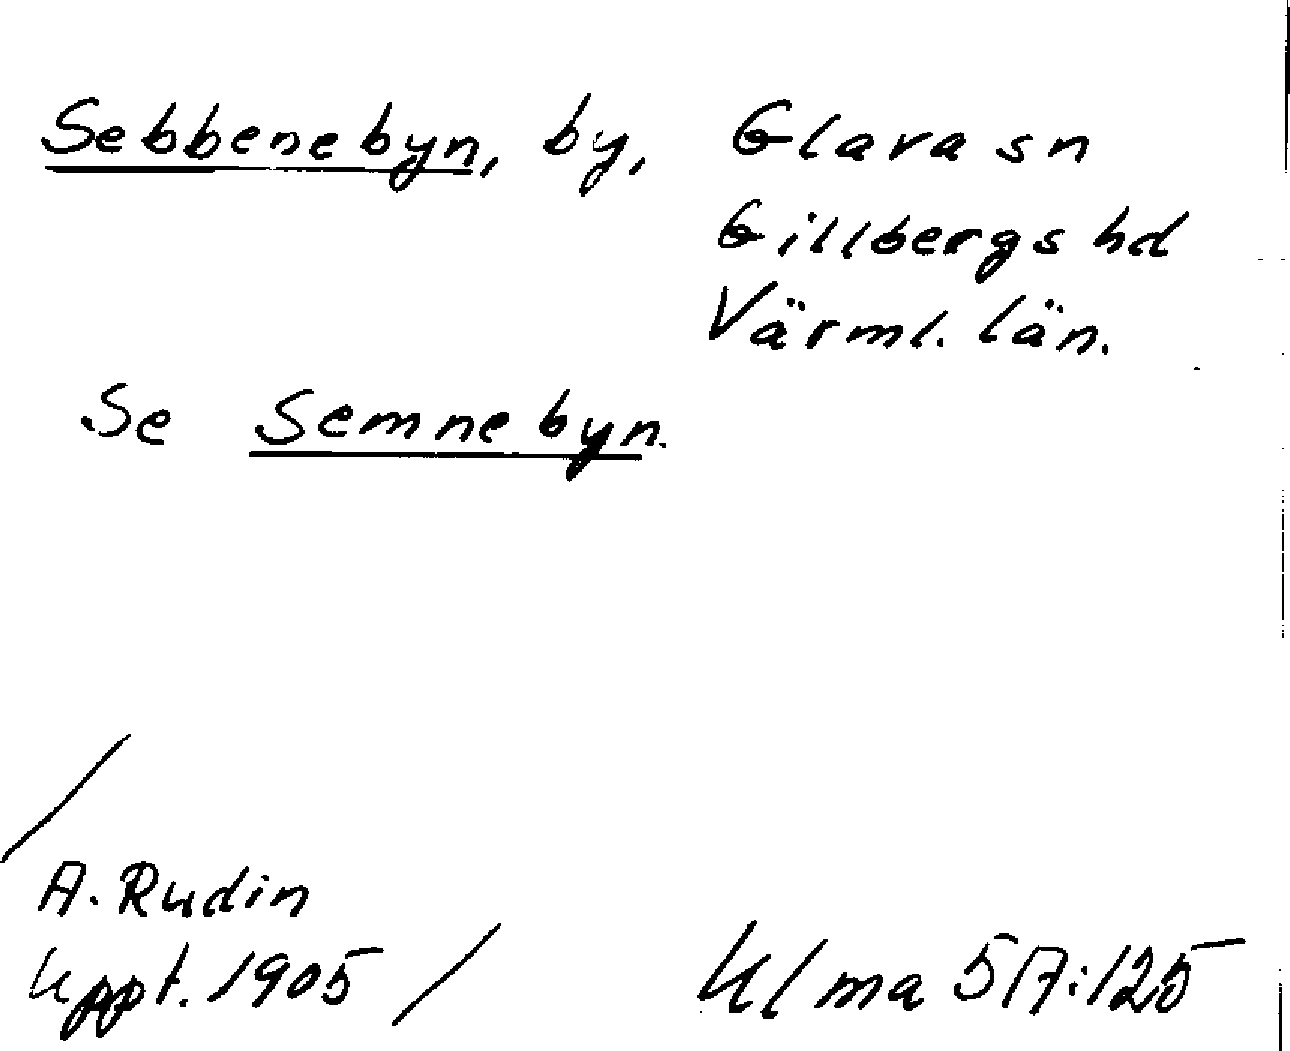 Sebbenebyn, by, Glava sn
Gillbergs hd
Värml. län.
Se Semnebyn.
A. Rudin
Uppt. 1905
Ulma 517:125